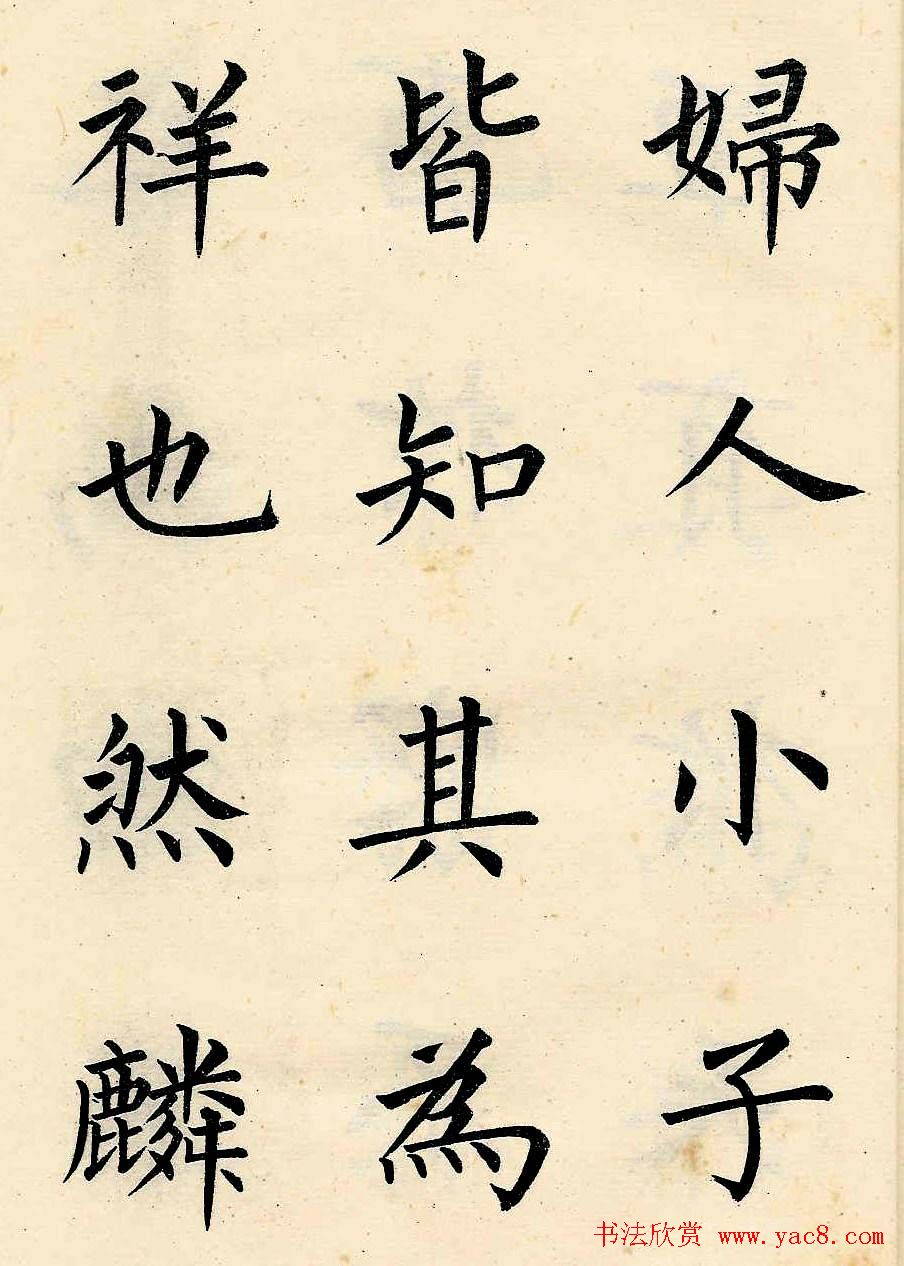 婦人小子
皆知其為
祥也然麟
书法欣赏 www.yac8.com